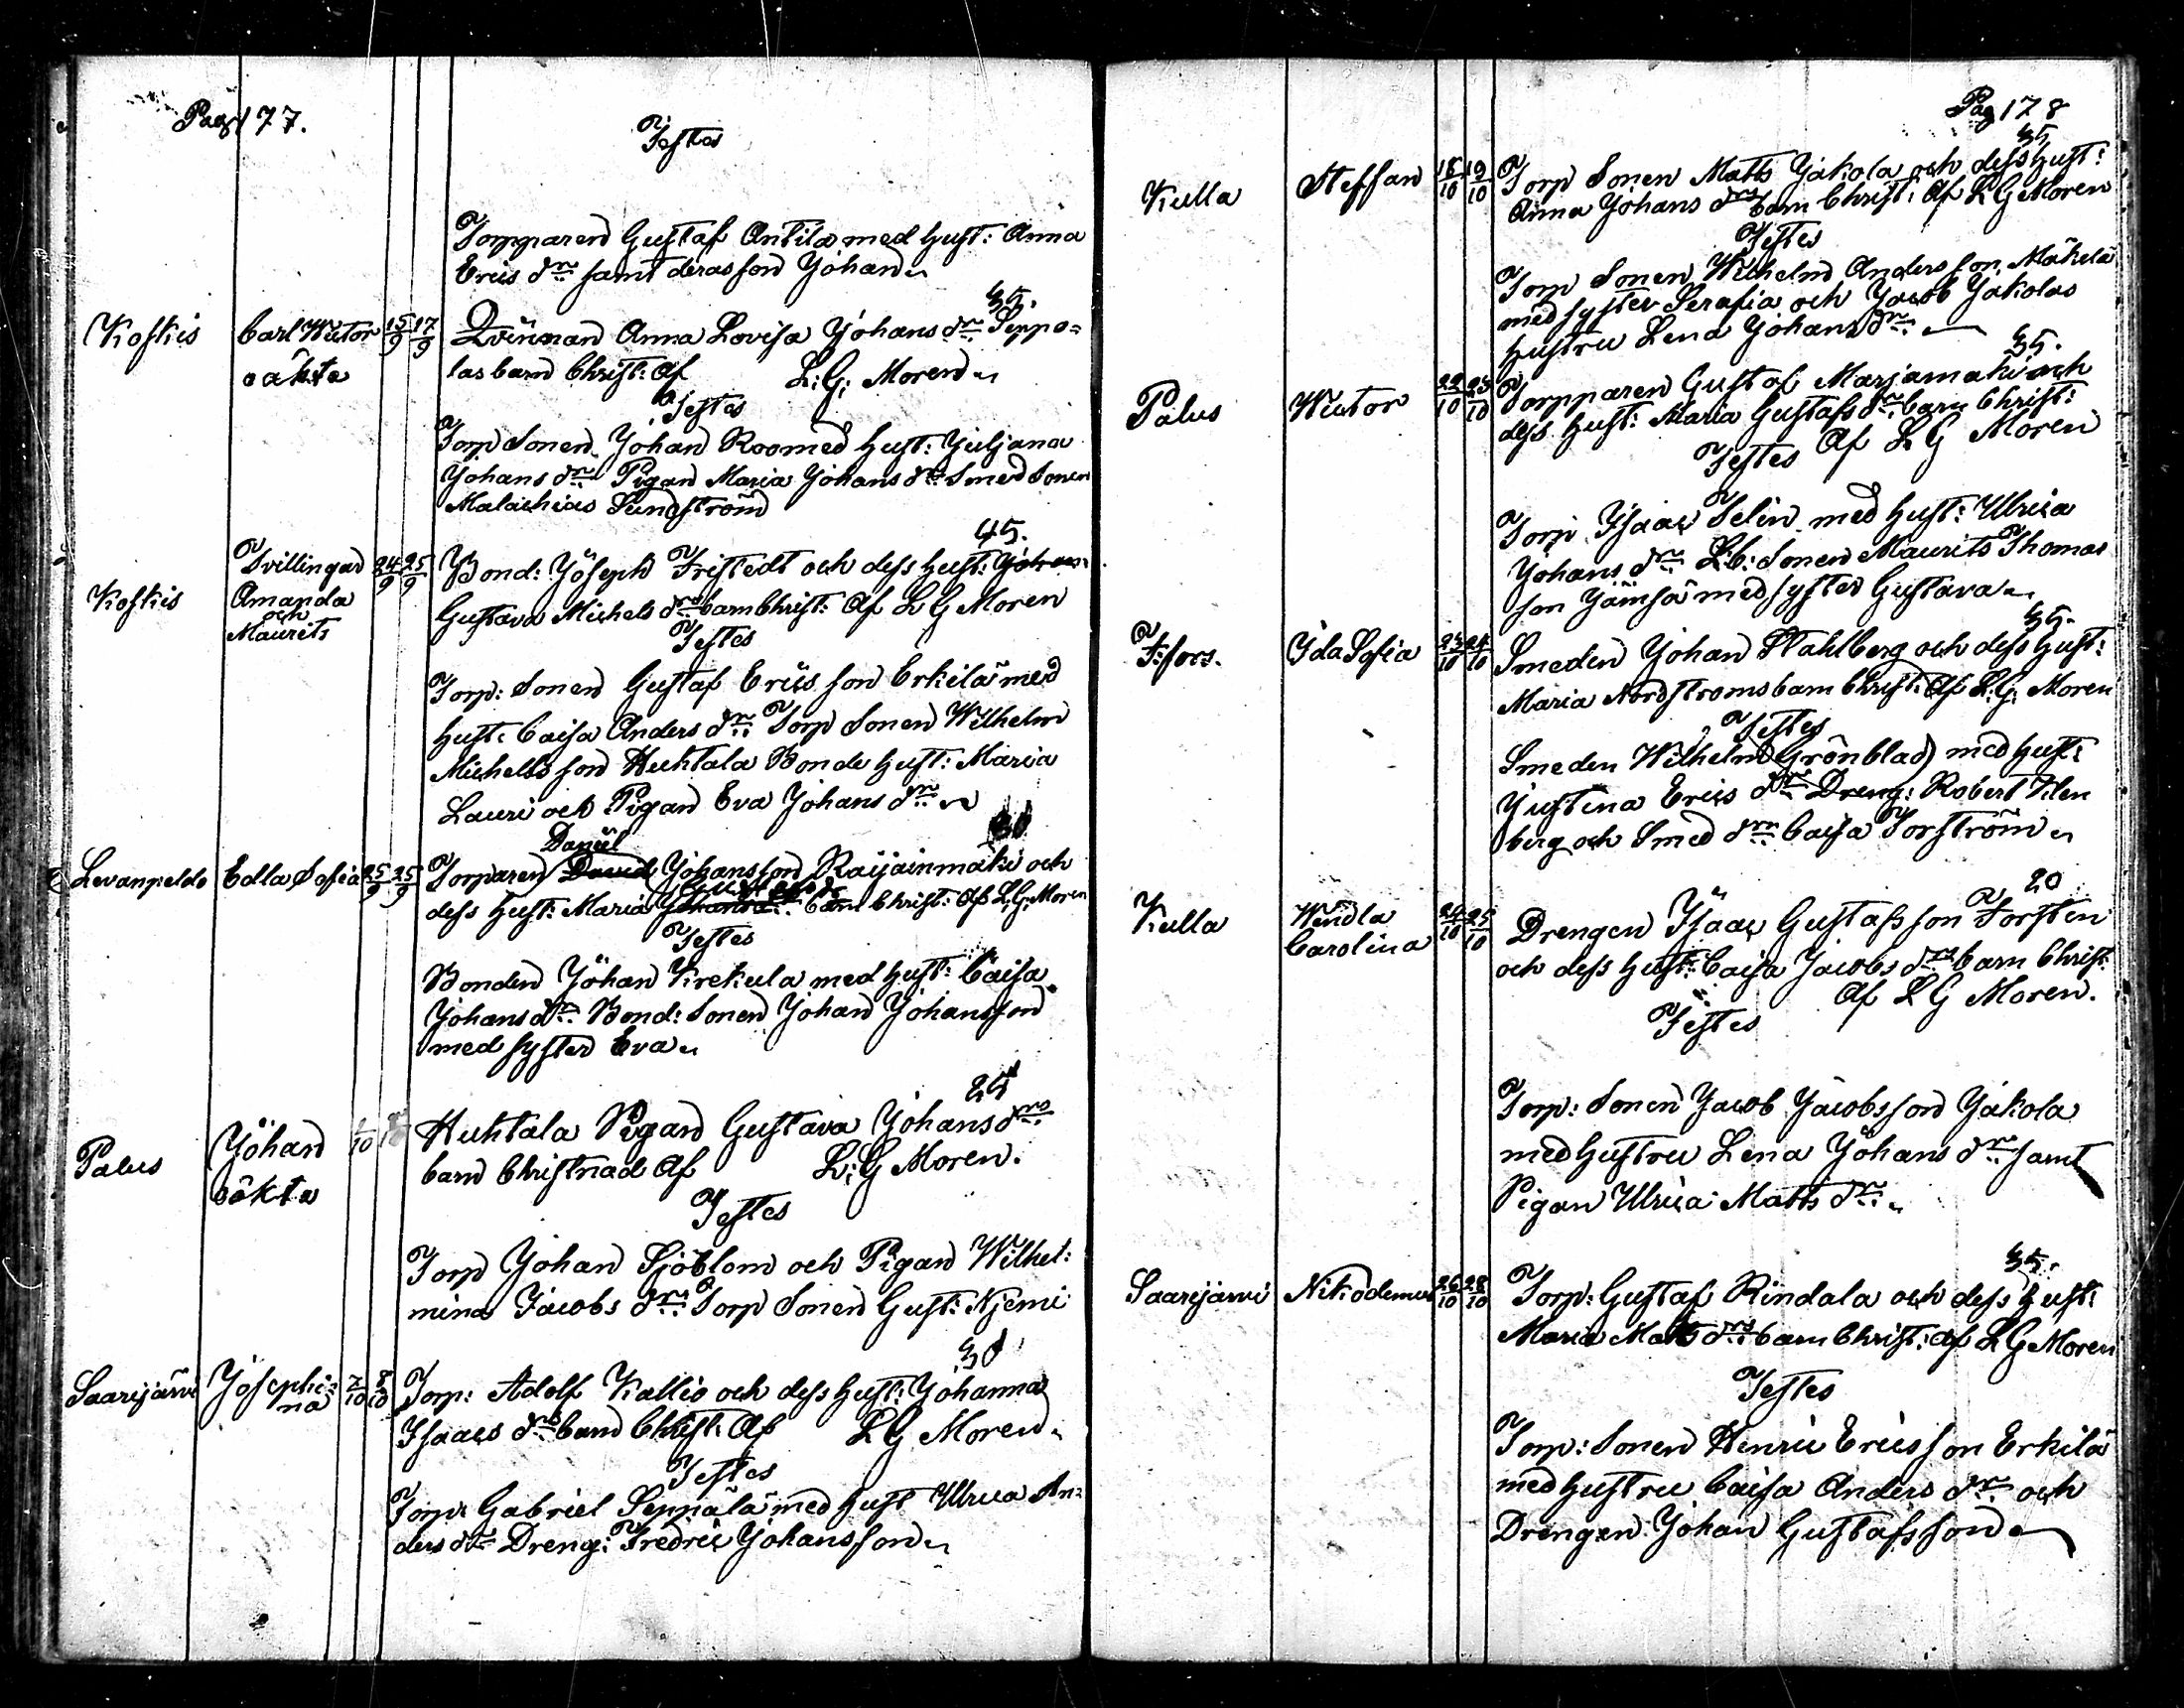 Pag 177.
Testes
Torpparen Gustaf Antila med Hust: Anna
Erics dr: samt deras son Johan
35.
Koskis Carl Wictor 15/9 17/9 Qvinnan Anna Lovisa Johans dr: Seppo=
oäkta las barn Christ: Af L: G: Moren
Testes
Torp Sonen Johan Roo med Hust: Juljana
Johans dr: Pigan Maria Johans dr: Smed Sonen
Malachias Sundström
45.
Koskis Tvillingar 24/9 25/9 Bond: Joseph Fristedt och dess Hust: Johans
Amanda Gustava Michels drs: barn Christ: Af L G Moren
och
Maurits
Testes
Torp: Sonen Gustaf Erics son Erkilä med
Hust: Caisa Anders dr: Torp Sonen Wilhelm
Michels son Huhtala Bonde Hust: Maria
Lauri och Pigan Eva Johans dr:
30
Daniel
Levanpeldo Edla Sofia 25/9 25/9 Torparen David Johansson Raijainmäki och
dess Hust: Maria barn Christ: Af L: G: Moren
Testes
Bonden Johan Krekula med Hust: Caisa
Johans dr: Bond: Sonen Johan Johansson
med syster Eva
25
Palus Johan /10 Huhtala Pigan Gustava Johans drs:
oäkta barn Christnad Af L: G Moren.
Testes
Torp Johan Sjöblom och Pigan Wilhel:
mina Jacobs dr: Torp Sonen Gust: Njemi
30
Saarijärvi Josephi= 7/10 8/10 Torp: Adolf Kallio och dess Hust: Johanna
na Isaacs drs: barn Christ: Af L G Moren
Testes
Torp: Gabriel Seppälä med Hust Ulrica An=
ders dr: Dreng: Fredric Johansson
Pag 178
35
Kulla Steffan 18/10 19/10 Torp Sonen Matts Jakola och dess Hust:
Anna Johans drs: barn Christ: Af L G Moren
Testes
Torp Sonen Wilhelm Anders son Mäkelä
med syster Serafia och Jacob Jakolas
Hustru Lena Johans dr:
35.
Palus Wictor 22/10 23/10 Torpparen Gustaf Marjamäki och
dess Hust: Maria Gustafs drs: barn Christ:
Af L G Moren
Testes
Torp Isaac Selin med Hust: Ulrica
Johans dr: L: b: Sonen Maurits Thomas
son Jämsä med syster Gustava
35.
F:fors. Ida Sofia 23/10 24/10 Smeden Johan Stahlberg och dess Hust:
Maria Nordstroms barn Christ: Af L: G: Moren
Testes
Smeden Wilhelm Grönblad med Hust:
Justina Erics dr: Dreng: Robert Flen
berg och Smed dr: Caisa Forström
20
Kulla Wendla 24/10 25/10 Drengen Isaac Gustafsson Forsten
Carolina och dess Hust: Caisa Jacobs drs: barn Christ:
Af L G Moren.
Testes
Torp: Sonen Jacob Jacobsson Jakola
med Hustru Lena Johans dr: samt
Pigan Ulrica Matts dr:
35.
Saarijärvi Nikodemus 26/10 28/10 Torp: Gustaf Rindala och dess Hust:
Maria Matts drs: barn Christ: af L G Moren
Testes
Torp: Sonen Henric Ericsson Erkilä
med Hustru Caisa Anders dr: och
Drengen Johan Gustafsson